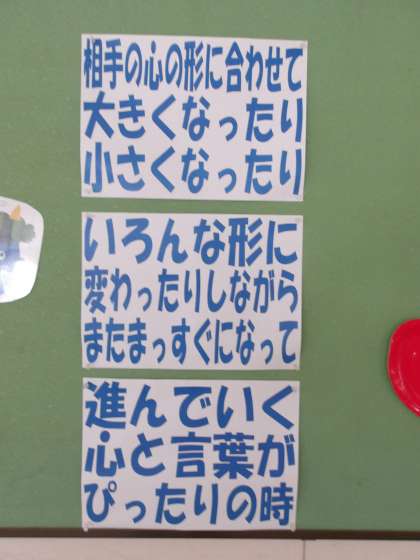 相手の心の形に合わせて
大きくなったり
小さくなったり
いろんな形に
変わったりしながら
またまっすぐになって
進んでいく
心と言葉が
ぴったりの時